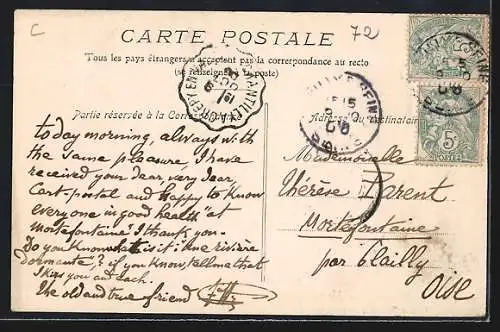 C
72
CARTE POSTALE
Tous les pays étrangers n'acceptent pas la correspondance au recto
(se renseigner à la poste)
Partie réservée à la Correspondance
Adresse du Destinataire
5c
POSTES
today morning, always with
the same pleasure, I have
received your dear, very dear,
Cart-postal and happy to know
everyone in good health "at
mortefontaine" I thank you.-
Do you know what is it: "une rivière
dormante"? if you know, tell me that
I kiss you and each.
The old and true friend
Mademoiselle
Thérèse Parent
Mortefontaine
par Plailly
Oise